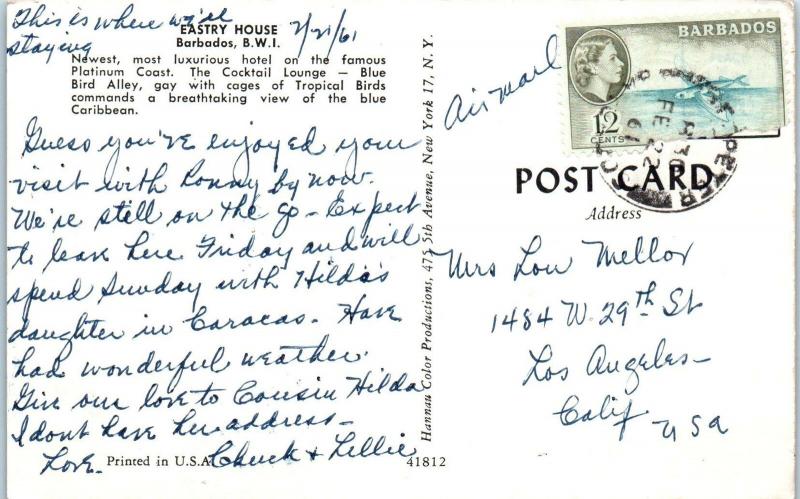 This is where we're
staying
2/21/61
EASTRY HOUSE
Barbados, B.W.I.
Newest, most luxurious hotel on the famous
Platinum Coast. The Cocktail Lounge — Blue
Bird Alley, gay with cages of Tropical Birds
commands a breathtaking view of the blue
Caribbean.
Guess you've enjoyed your
visit with Ronny by now.
We're still on the go - Expect
to leave here Friday and will
spend Sunday with Hilda's
daughter in Caracas. Have
had wonderful weather.
Give our love to Cousin Hilda
I dont have her address -
Love. Chuck + Lillie
Printed in U.S.A.
41812
Hannau Color Productions, 475 5th Avenue, New York 17, N. Y.
Air mail
BARBADOS
12
CENTS
FE 22
61
POST CARD
Address
Mrs Lou Mellor
1484 W. 29th St
Los Angeles -
Calif
USA